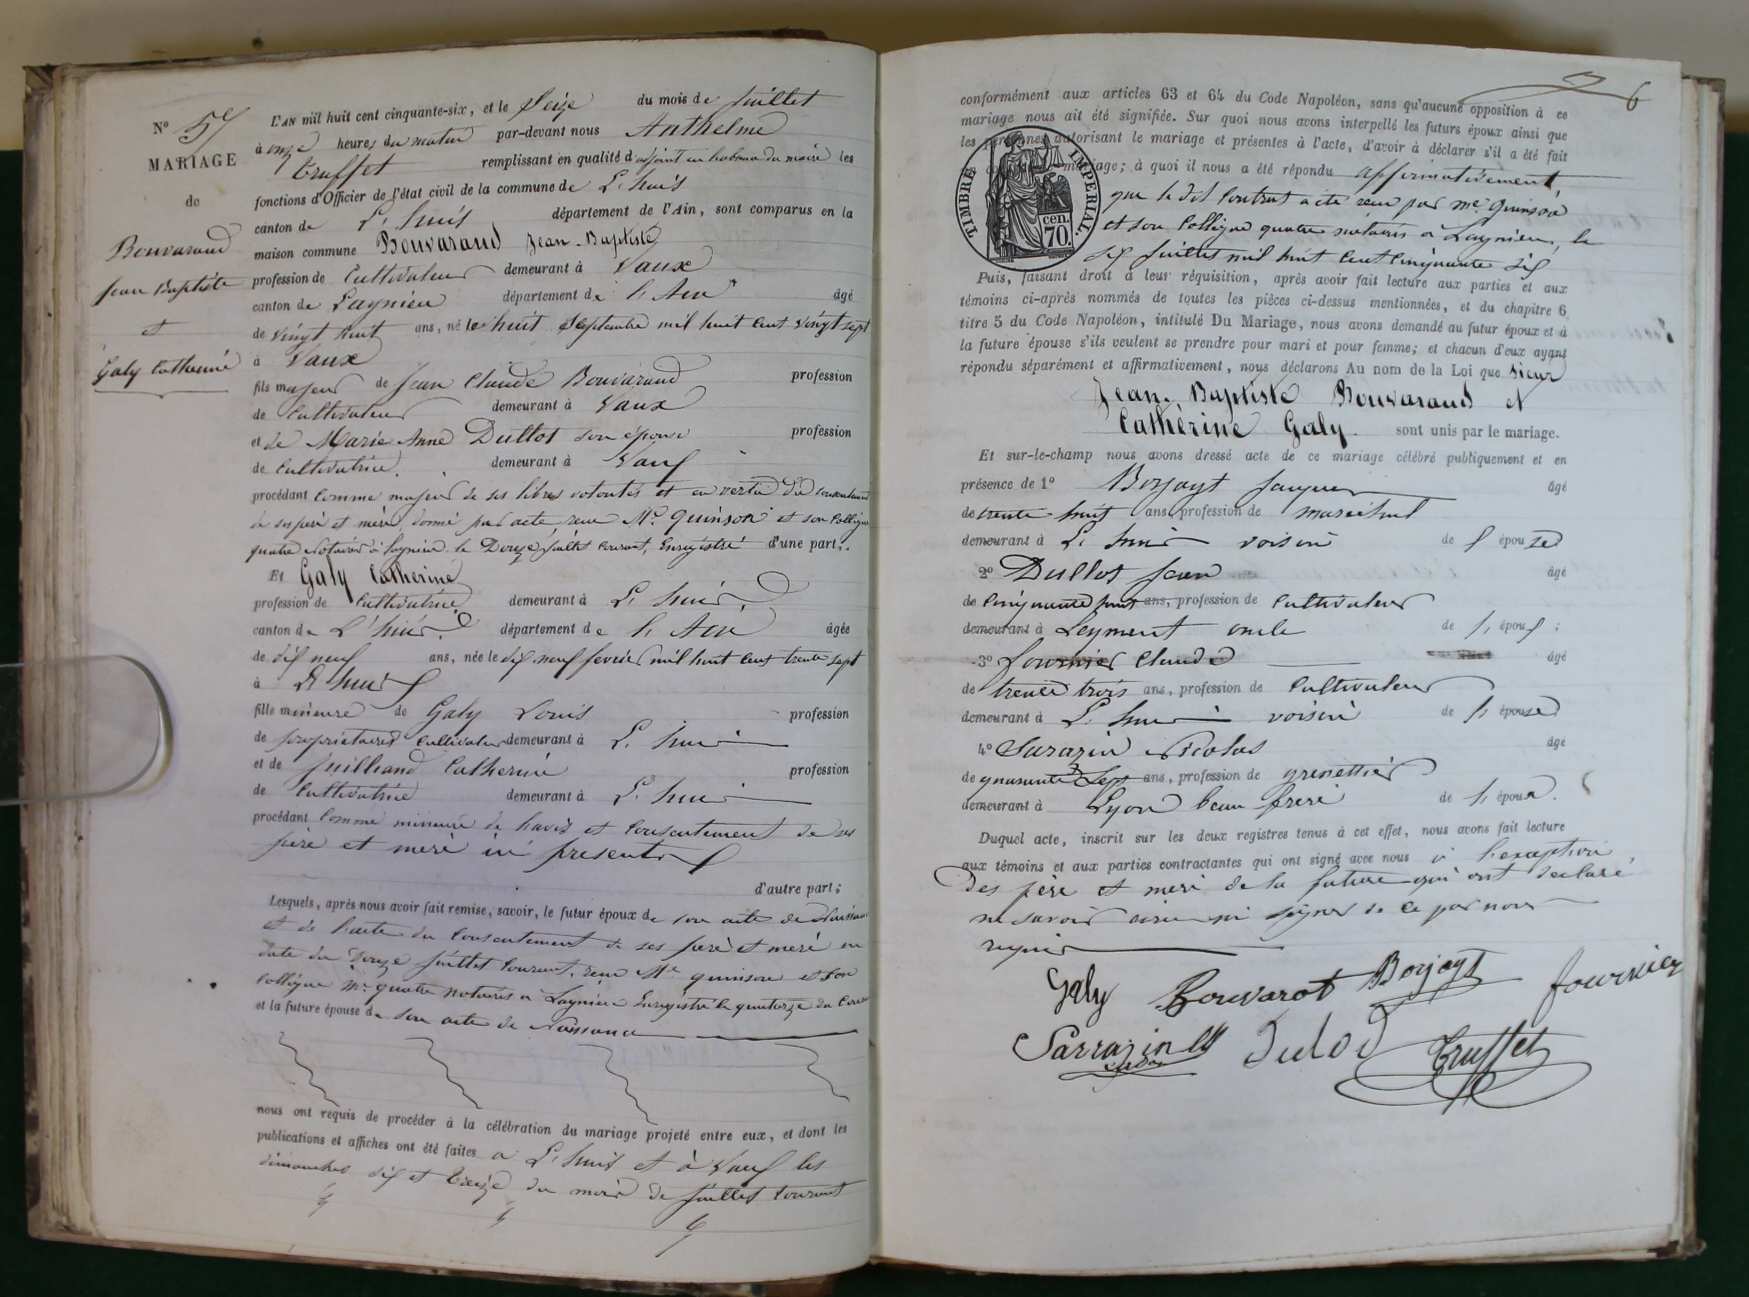 N° 5
MARIAGE
de
Bouvarand
Jean Baptiste
et
Galy Catherine
L'AN mil huit cent cinquante-six, et le Seize du mois de Juillet
à onze heures du matin par-devant nous Anthelme
Truffet remplissant en qualité d'adjoint en l'absence du maire les
fonctions d'Officier de l'état civil de la commune de L'huis
canton de L'huis département de l'Ain, sont comparus en la
maison commune Bouvarand Jean-Baptiste
profession de Cultivateur demeurant à Vaux
canton de Lagnieu département de l'Ain âgé
de vingt huit ans, né le huit Septembre mil huit cent vingt sept
à Vaux
fils majeur de Jean Claude Bouvarand profession
de Cultivateur demeurant à Vaux
et de Marie Anne Dullot son épouse profession
de Cultivatrice. demeurant à Vaux
procédant comme majeur de ses libres volontés et en vertu du consentement
de ses père et mère, donné par acte reçu Me. Quinson et son Collègue
quatre Notaires à Lagnieu le Douze Juillet courant, Enregistré d'une part;
Et Galy Catherine
profession de Cultivatrice demeurant à L'huis,
canton de L'huis. département de l'Ain âgée
de dix neuf ans, née le dix neuf fevrier mil huit cent trente sept
à L'huis
fille mineure de Galy Louis profession
de propriétaire Cultivateur demeurant à L'huis
et de Juilliand Catherine profession
de Cultivatrice demeurant à L'huis
procédant comme mineure de l'avis et consentement de ses
père et mère ici présents
d'autre part;
Lesquels, après nous avoir fait remise, savoir, le futur époux de son acte de Naissance
et de l'acte du consentement de ses père et mère en
date du Douze Juillet courant, reçu Me quinson et son
collègue Me. quatre notaires à Lagnieu Enregistré le quatorze du Courant
et la future épouse de son acte de Naissance
nous ont requis de procéder à la célébration du mariage projeté entre eux, et dont les
publications et affiches ont été faites à L'huis et à Vaux les
dimanches six et treize du mois de Juillet Courant
6
conformément aux articles 63 et 64 du Code Napoléon, sans qu'aucune opposition à ce
mariage nous ait été signifiée. Sur quoi nous avons interpellé les futurs époux ainsi que
les personnes autorisant le mariage et présentes à l'acte, d'avoir à déclarer s'il a été fait
mariage; à quoi il nous a été répondu affirmativement,
que le dit contrat a été reçu par me. Quinson
et son collègue quatre notaires à Lagnieu, le
six juillet mil huit cent cinquante six
TIMBRE IMPÉRIAL.
70 cen.
Puis, faisant droit à leur réquisition, après avoir fait lecture aux parties et aux
témoins ci-après nommés de toutes les pièces ci-dessus mentionnées, et du chapitre 6
titre 5 du Code Napoléon, intitulé Du Mariage, nous avons demandé au futur époux et à
la future épouse s'ils veulent se prendre pour mari et pour femme; et chacun d'eux ayant
répondu séparément et affirmativement, nous déclarons Au nom de la Loi que Sieur
Jean-Baptiste Bouvarand et
Catherine Galy sont unis par le mariage.
Et sur-le-champ nous avons dressé acte de ce mariage célébré publiquement et en
présence de 1° Borjayt Jacques âgé
de trente huit ans, profession de marechal
demeurant à L'huis voisin de l'épouse
2° Dullot Jean âgé
de Cinquante huit ans, profession de Cultivateur
demeurant à Leyment oncle de l'époux;
3° fournier Claude âgé
de trente trois ans, profession de Cultivateur
demeurant à L'huis voisin de l'épouse
4° Sarazin Nicolas âgé
de quarante sept ans, profession de grenettier
demeurant à Lyon beau frère de l'époux.
Duquel acte, inscrit sur les deux registres tenus à cet effet, nous avons fait lecture
aux témoins et aux parties contractantes qui ont signé avec nous à l'exception
des père et mère de la future qui ont déclaré
ne savoir écrire ni signer de ce par nous
requis
Galy Bouvarot Borjayt fournier
Sarrazin Dulod Truffet